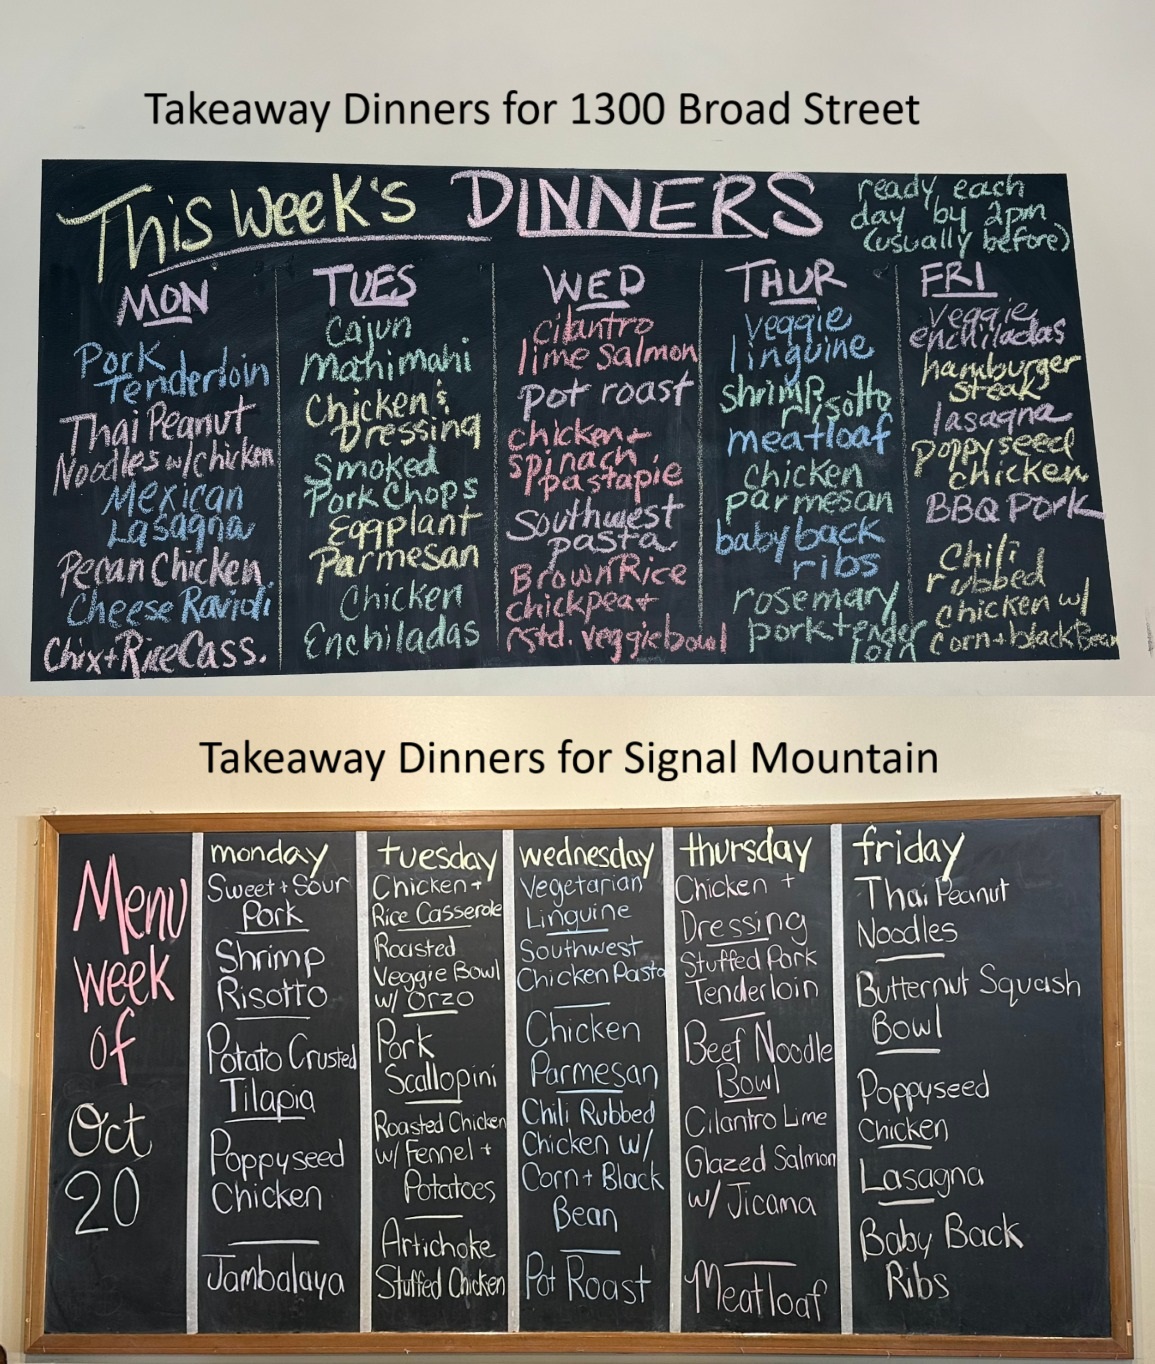 Takeaway Dinners for 1300 Broad Street
This Week's DINNERS
ready each
day by 2pm
(usually before)
MON
Pork
Tenderloin
Thai Peanut
Noodles w/chicken
Mexican
Lasagna
Pecan Chicken
Cheese Ravioli
Chix+Rice Cass.
TUES
Cajun
Mahimahi
Chicken &
Dressing
Smoked
Pork Chops
Eggplant
Parmesan
Chicken
Enchiladas
WED
cilantro
lime salmon
pot roast
chicken+
spinach
pastapie
Southwest
pasta
Brown Rice
chickpea+
rstd. veggie bowl
THUR
veggie
linguine
shrimp
risotto
meatloaf
chicken
parmesan
baby back
ribs
rosemary
pork tender
loin
FRI
veggie
enchiladas
hamburger
steak
lasagna
poppyseed
chicken
BBQ Pork
Chili
rubbed
chicken w/
corn+black Bean
Takeaway Dinners for Signal Mountain
Menu
week
of
Oct
20
monday
Sweet + Sour
Pork
Shrimp
Risotto
Potato Crusted
Tilapia
Poppyseed
Chicken
Jambalaya
tuesday
Chicken +
Rice Casserole
Roasted
Veggie Bowl
w/ Orzo
Pork
Scallopini
Roasted Chicken
w/ Fennel +
Potatoes
Artichoke
Stuffed Chicken
wednesday
Vegetarian
Linguine
Southwest
Chicken Pasta
Chicken
Parmesan
Chili Rubbed
Chicken w/
Corn + Black
Bean
Pot Roast
thursday
Chicken +
Dressing
Stuffed Pork
Tenderloin
Beef Noodle
Bowl
Cilantro Lime
Glazed Salmon
w/ Jicama
Meatloaf
friday
Thai Peanut
Noodles
Butternut Squash
Bowl
Poppyseed
Chicken
Lasagna
Baby Back
Ribs